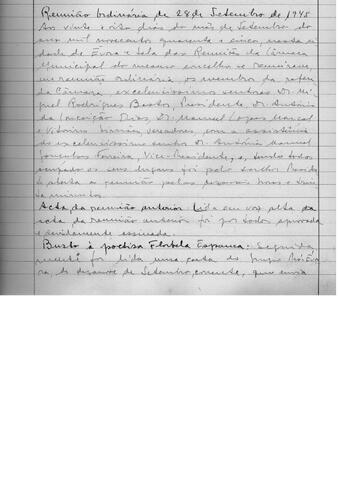 Reunião Ordinária de 28 de Setembro de 1945
Aos vinte e oito dias do mês de Setembro do
ano mil novecentos quarenta e cinco, nesta ci
dade de Évora e Sala das Reuniões da Câmara
Municipal do mesmo concelho se reuniram
em reunião ordinária os membros da refer
da Câmara, excelentíssimos senhores Dr. Mi
guel Rodrigues Bastos, Presidente, Dr. António
da Conceição Dias, Dr. Manuel Lopes Marçal
e Vitorino vereadores, com a assistência
do excelentíssimo senhor Dr. António Manuel
Gonçalves Ferreira, Vice-Presidente, e, tendo todos
ocupado os seus lugares foi pelo Senhor Presid
te aberta a reunião pelas dezasseis horas e
minutos.
Acta da reunião anterior: Lida em voz alta a
acta da reunião anterior foi por todos aprovada
e devidamente assinada.
Busto à poetisa Florbela Espanca: Seguida
mente foi lida uma carta do Grupo Pró-Évo
ra, de dezanove de Setembro corrente, que envia